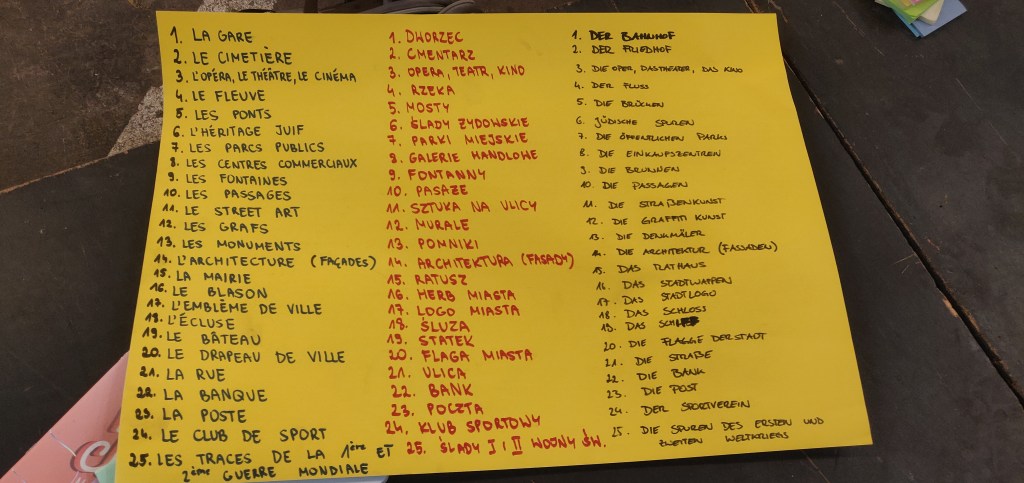 1. LA GARE
2. LE CIMETIÈRE
3. L'OPÉRA, LE THÉÂTRE, LE CINÉMA
4. LE FLEUVE
5. LES PONTS
6. L'HÉRITAGE JUIF
7. LES PARCS PUBLICS
8. LES CENTRES COMMERCIAUX
9. LES FONTAINES
10. LES PASSAGES
11. LE STREET ART
12. LES GRAFS
13. LES MONUMENTS
14. L'ARCHITECTURE (FAÇADES)
15. LA MAIRIE
16. LE BLASON
17. L'EMBLÈME DE VILLE
18. L'ÉCLUSE
19. LE BÂTEAU
20. LE DRAPEAU DE VILLE
21. LA RUE
22. LA BANQUE
23. LA POSTE
24. LE CLUB DE SPORT
25. LES TRACES DE LA 1ère ET
2ème GUERRE MONDIALE
1. DWORZEC
2. CMENTARZ
3. OPERA, TEATR, KINO
4. RZEKA
5. MOSTY
6. ŚLADY ŻYDOWSKIE
7. PARKI MIEJSKIE
8. GALERIE HANDLOWE
9. FONTANNY
10. PASAŻE
11. SZTUKA NA ULICY
12. MURALE
13. POMNIKI
14. ARCHITEKTURA (FASADY)
15. RATUSZ
16. HERB MIASTA
17. LOGO MIASTA
18. ŚLUZA
19. STATEK
20. FLAGA MIASTA
21. ULICA
22. BANK
23. POCZTA
24. KLUB SPORTOWY
25. ŚLADY I i II WOJNY ŚW.
1. DER BAHNHOF
2. DER FRIEDHOF
3. DIE OPER, DAS THEATER, DAS KINO
4. DER FLUSS
5. DIE BRÜCKEN
6. JÜDISCHE SPUREN
7. DIE ÖFFENTLICHEN PARKS
8. DIE EINKAUFSZENTREN
9. DIE BRUNNEN
10. DIE PASSAGEN
11. DIE STRAßENKUNST
12. DIE GRAFFITI KUNST
13. DIE DENKMÄLER
14. DIE ARCHITEKTUR (FASSADEN)
15. DAS RATHAUS
16. DAS STADTWAPPEN
17. DAS STADTLOGO
18. DAS SCHLOSS
19. DAS SCHIFF
20. DIE FLAGGE DER STADT
21. DIE STRAßE
22. DIE BANK
23. DIE POST
24. DER SPORTVEREIN
25. DIE SPUREN DES ERSTEN UND
ZWEITEN WELTKRIEGS